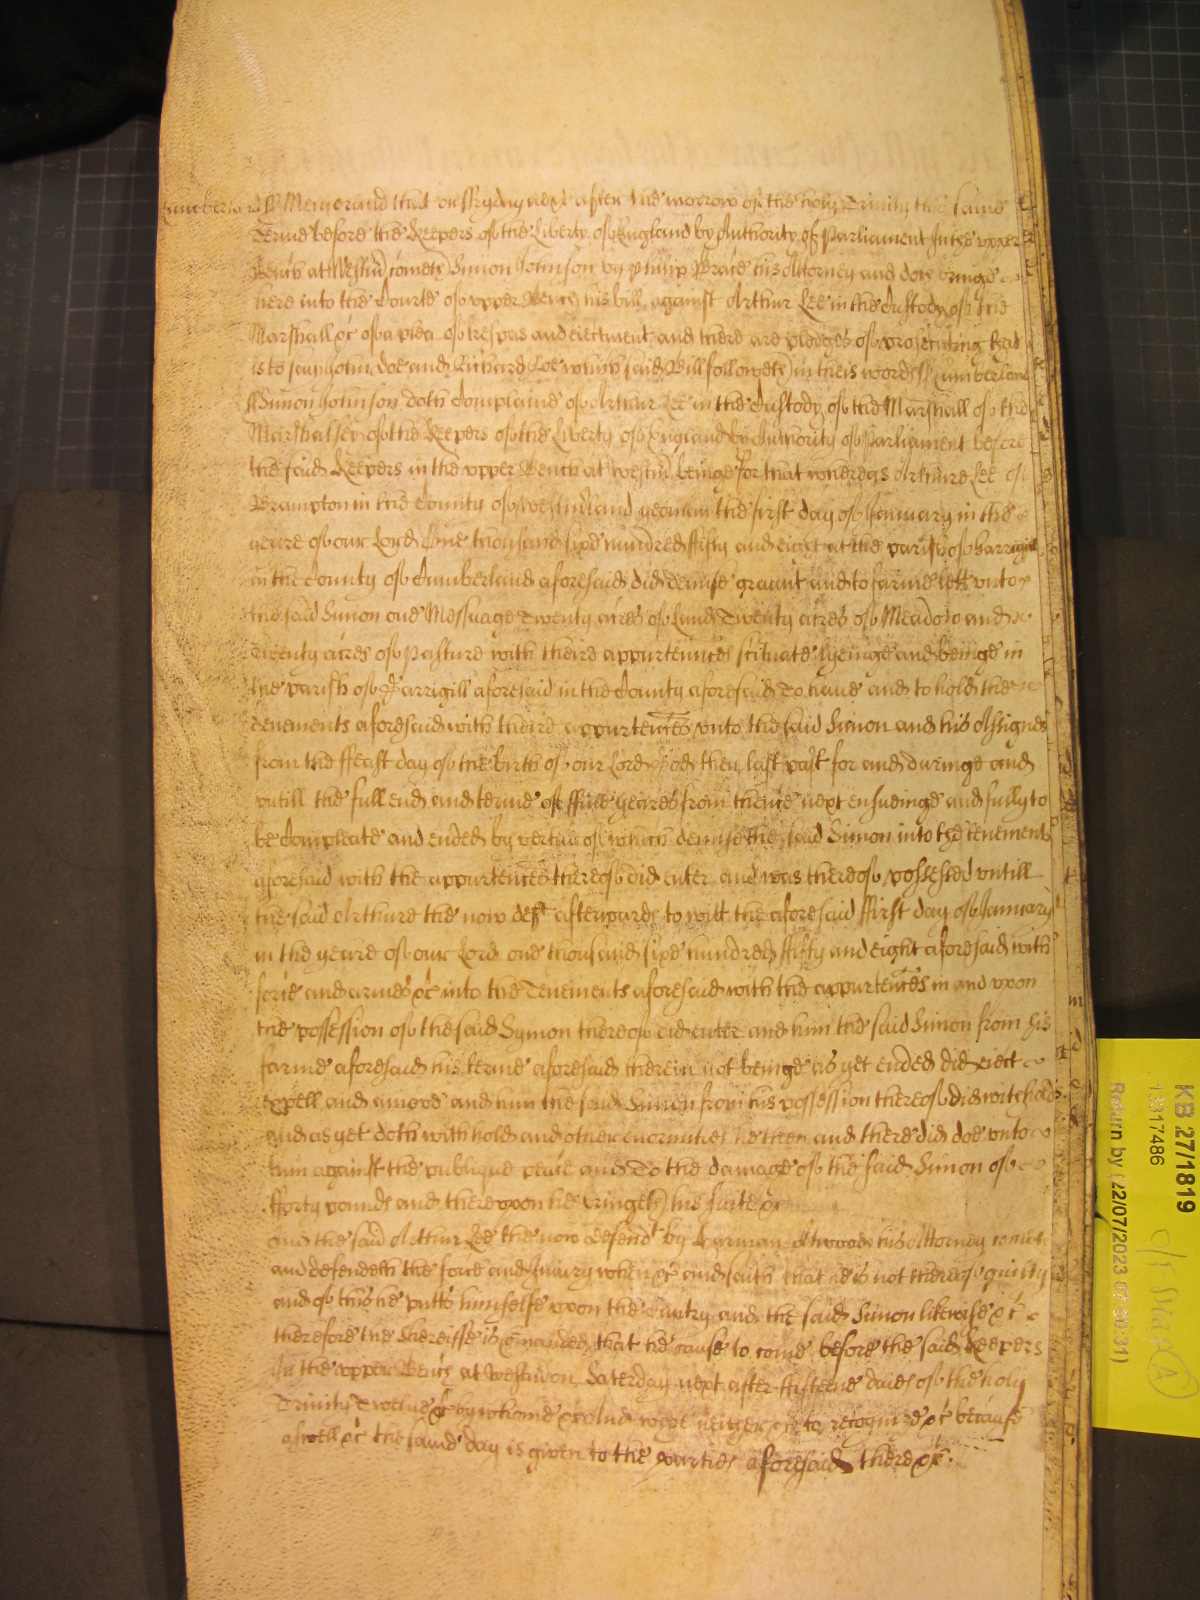 Cumberland ss Memorand that on ffryday next after the morrow of the holy Trinity this same
Terme before the Keepers of the Liberty of England by Authority of Parliament In the upper
Bench at Westm̃ cometh Simon Johnson by Philip Braie his Attorney and doth bringe
here into the Courte of upper Bench his bill against Arthur Lee in the Custody of the
Marshall &c of a plea of trespas and eiectment and there are pledges of prosecuting that
is to say John Doe and Richard Roe which said Bill followeth in theis words ss Cumberland
ss Simon Johnson doth Complaine of Arthur Lee in the Custody of the Marshall of the
Marshalsey of the Keepers of the Liberty of England by Authority of Parliament before
the said Keepers in the upper Bench at Westm̃ beinge for that whereas Arthure Lee of
Brampton in the County of Westmland yeoman the first day of January in the
yeare of our Lord One thousand sixe hundred fifty and eight at the parish of Garrigill
in the County of Cumberland aforesaid did demise graunt and to farme lett unto
the said Simon one Messuage Twenty acres of Land Twenty acres of Meadow and
Twenty acres of Pasture with their appurtences scituate lyeinge and beinge in
the parish of Garrigill aforesaid in the County aforesaid To have and to hold the
Tenements aforesaid with their appurtences unto the said Simon and his Assignes
from the ffeast day of the birth of our Lord God then last past for and duringe and
untill the full end and terme of ffive yeares from thence next ensueinge and fully to
be Compleate and ended by vertue of which demise the said Simon into the tenements
aforesaid with the appurtences thereof did enter and was thereof possessed untill
the said Arthure the now deft afterwards to witt the aforesaid ffirst day of January
in the yeare of our Lord one thousand sixe hundred fifty and eight aforesaid with
force and armes &c into the Tenements aforesaid with the appurtences in and upon
the possession of the said Symon thereof did enter and him the said Simon from his
farme aforesaid his terme aforesaid therein not beinge as yet ended did eiect
expell and amove and him the said Simon from his possession thereof did withhold
and as yet doth withhold and other enormities he then and there did doe unto
him against the publique peace and To the damage of the said Simon of
fforty pounds and thereupon he bringeth his suite &c
And the said Arthur Lee the now defendt by Atwood his Attorney cometh
and defendeth the force and Iniury when &c and saith that he is not thereof guilty
and of this he putts himselfe upon the Cuntry and the said Simon likewise &c
therefore the Shereiffe is comanded that he cause to come before the said Keepers
In the upper Bench at Westm̃ on Saterday next after ffifteene daies of the holy
Trinity Twelve &c by whome &c and who neither &c to recognize &c because
aswell &c the same day is given to the parties aforesaid there &c.
KB 27/1819
13317486
Return by (22/07/2023 07:30:31)